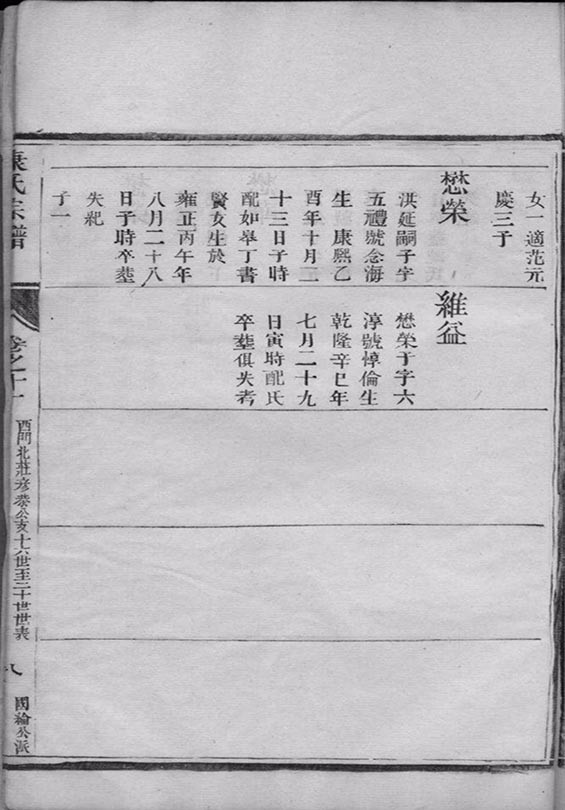 女一適范元
慶三子
懋榮
洪延嗣子字
五禮號念海
生 康熙乙
酉年十月二
十三日子時
配如皋丁書
賢女生於
雍正丙午年
八月二十八
日子時卒塟
失紀
子一
維益
懋榮子字六
淳號悼倫生
乾隆辛巳年
七月二十九
日寅時配氏
卒塟俱失考
袁氏宗譜
卷之十一
西門北莊彥恭公支十六世至二十世世表
八
國論公派